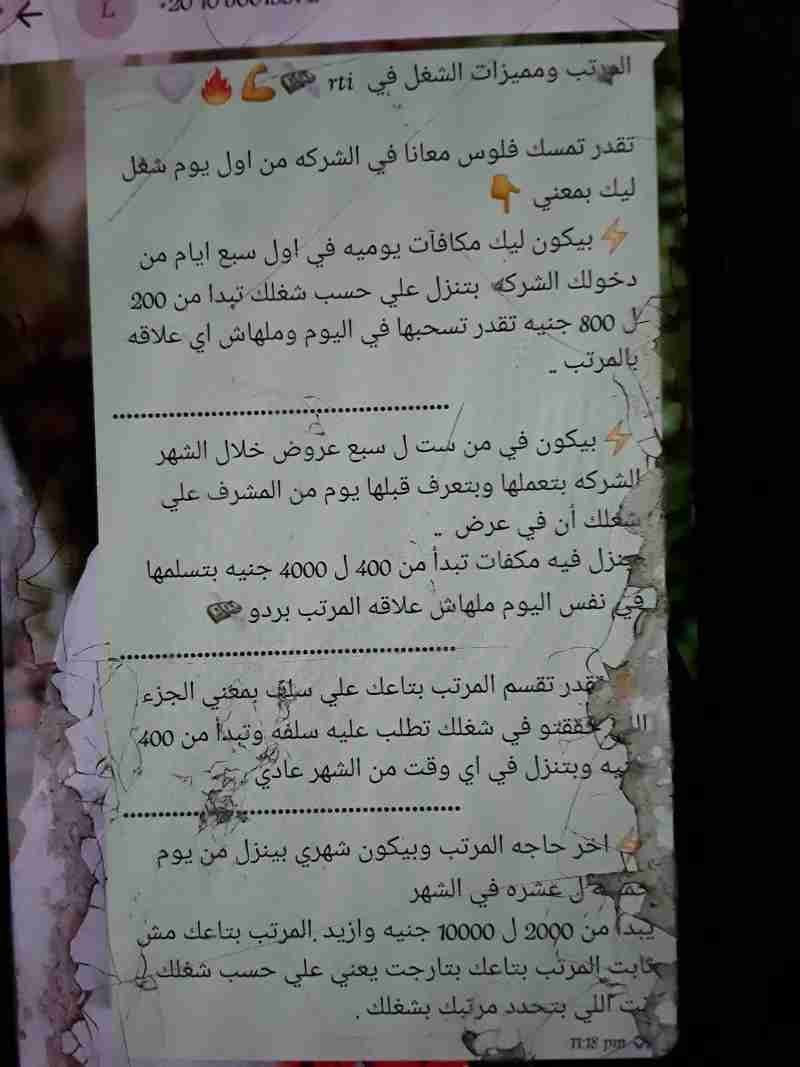 L
المرتب ومميزات الشغل في rti
تقدر تمسك فلوس معانا في الشركه من اول يوم شغل
ليك بمعني 👇
⚡ بيكون ليك مكافآت يوميه في اول سبع ايام من
دخولك الشركه بتنزل علي حسب شغلك تبدا من 200
ل 800 جنيه تقدر تسحبها في اليوم وملهاش اي علاقه
بالمرتب ..
..................................................
⚡ بيكون في من ست ل سبع عروض خلال الشهر
الشركه بتعملها وبتعرف قبلها يوم من المشرف علي
شغلك أن في عرض ..
فيه مكفات تبدأ من 400 ل 4000 جنيه بتسلمها
في نفس اليوم ملهاش علاقه المرتب بردو
..................................................
تقدر تقسم المرتب بتاعك علي سلف بمعني الجزء
حققتو في شغلك تطلب عليه سلفه وتبدأ من 400
وبتنزل في اي وقت من الشهر عادي
..................................................
⚡ اخر حاجه المرتب وبيكون شهري بينزل من يوم
ل عشره في الشهر
يبدأ من 2000 ل 10000 جنيه وازيد .المرتب بتاعك مش
ثابت المرتب بتاعك بتارجت يعني علي حسب شغلك
اللي بتحدد مرتبك بشغلك .
11:18 pm